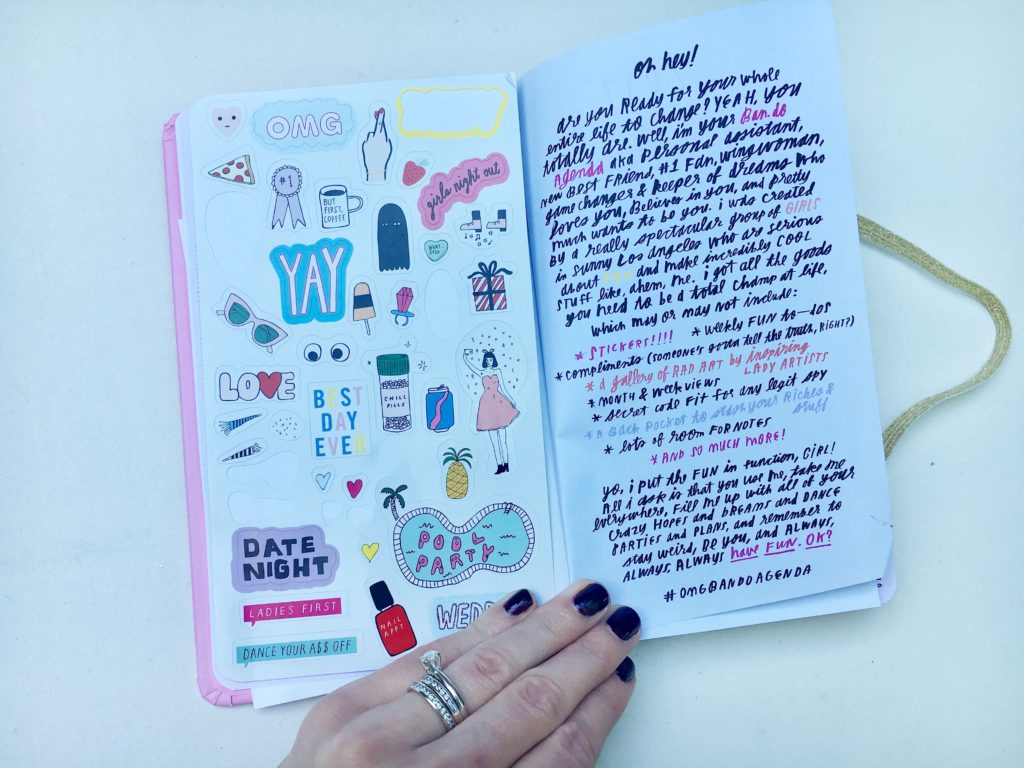 OMG
girls night out
#1
BUT
FIRST,
COFFEE
WHAT
EVER
YAY
LOVE
BEST
DAY
EVER
CHILL
PILLS
POOL
PARTY
DATE
NIGHT
LADIES FIRST
NAIL
APPT
WEDD
DANCE YOUR A$$ OFF
oh hey!
are you ready for your whole
entire life to change? YEAH, you
totally are. well, i'm your Ban.do
Agenda aka personal assistant,
new best friend, #1 fan, wingwoman,
game changer & keeper of dreams who
loves you, believes in you, and pretty
much wants to be you. i was created
by a really spectacular group of GIRLS
in sunny Los Angeles who are serious
about FUN and make incredibly COOL
STUFF like, ahem, me. i got all the goods
you need to be a total champ at life,
which may or may not include:
* STICKERS!!!! * weekly FUN to-dos
* compliments (someone's gotta tell the truth, RIGHT?)
* a gallery of RAD ART by inspiring
LADY ARTISTS
* MONTH & week views
* secret code fit for any legit spy
* A BACK POCKET to stash your Riches &
stuff
* lots of room FOR NOTES
* AND SO MUCH MORE!
yo, i put the FUN in function, GIRL!
All i ask is that you use me, take me
everywhere, fill me up with all of your
crazy HOPES and DREAMS and DANCE
PARTIES and PLANS, and remember to
stay weird, BE YOU, and ALWAYS,
ALWAYS, ALWAYS have FUN. OK?
#OMGBANDOAGENDA